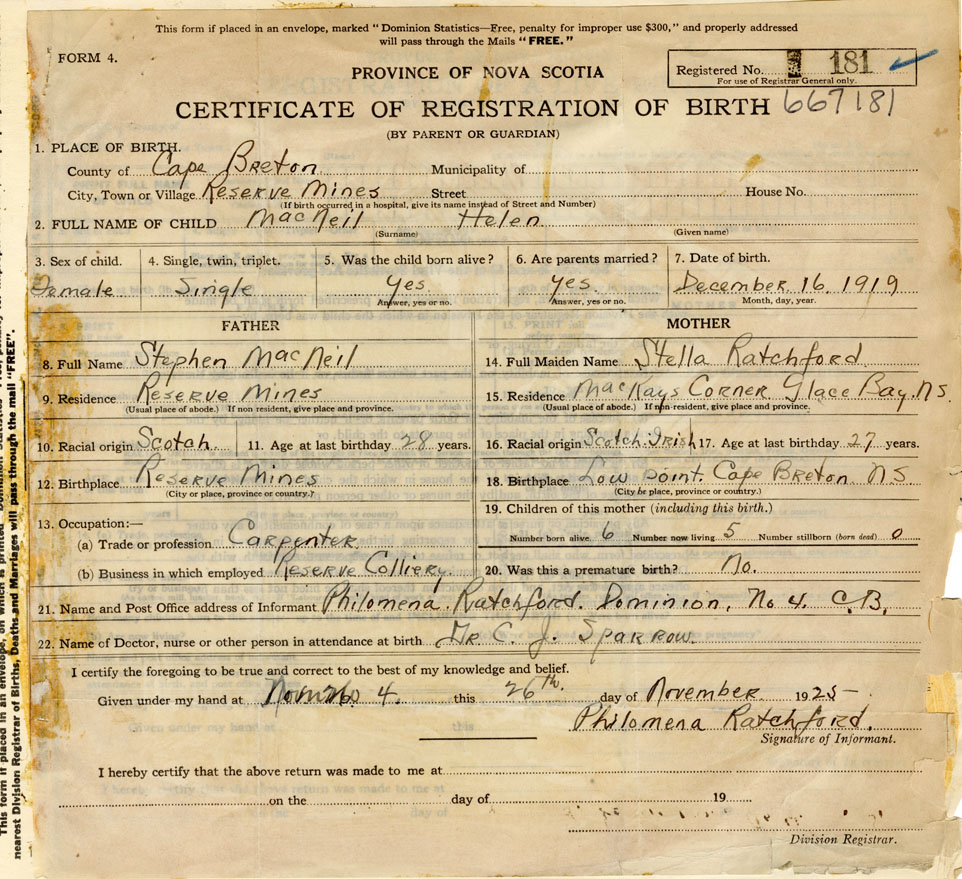 This form if placed in an envelope, marked "Dominion Statistics—Free, penalty for improper use $300," and properly addressed
will pass through the Mails "FREE."
FORM 4.
Registered No. 181
For use of Registrar General only.
PROVINCE OF NOVA SCOTIA
CERTIFICATE OF REGISTRATION OF BIRTH 667181
(BY PARENT OR GUARDIAN)
1. PLACE OF BIRTH.
County of Cape Breton Municipality of
City, Town or Village Reserve Mines Street House No.
(If birth occurred in a hospital, give its name instead of Street and Number)
2. FULL NAME OF CHILD MacNeil Helen
(Surname) (Given name)
3. Sex of child. 4. Single, twin, triplet. 5. Was the child born alive? 6. Are parents married? 7. Date of birth.
Female Single Yes Yes. December 16. 1919
Answer, yes or no. Answer, yes or no. Month, day, year.
FATHER MOTHER
8. Full Name Stephen MacNeil 14. Full Maiden Name Stella Ratchford
9. Residence Reserve Mines 15. Residence MacKays Corner Glace Bay. NS.
(Usual place of abode.) If non resident, give place and province. (Usual place of abode.) If non-resident, give place and province.
10. Racial origin Scotch. 11. Age at last birthday 28 years. 16. Racial origin Scotch. Irish 17. Age at last birthday 27 years.
12. Birthplace Reserve Mines 18. Birthplace Low point. Cape Breton NS
(City or place, province or country.) (City or place, province or country.)
13. Occupation:— 19. Children of this mother (including this birth.)
(a) Trade or profession Carpenter Number born alive 6 Number now living 5 Number stillborn (born dead) 0
(b) Business in which employed Reserve Colliery 20. Was this a premature birth? No.
21. Name and Post Office address of Informant Philomena Ratchford. Dominion, No 4. C.B.
22. Name of Doctor, nurse or other person in attendance at birth Dr C. J. Sparrow.
I certify the foregoing to be true and correct to the best of my knowledge and belief.
Given under my hand at No 4. this 26th. day of November 1925
Philomena Ratchford.
Signature of Informant.
I hereby certify that the above return was made to me at
on the day of 19
Division Registrar.
This form if placed in an envelope, on which is printed "Dominion Statistics
nearest Division Registrar of Births, Deaths and Marriages will pass through the mail "FREE".